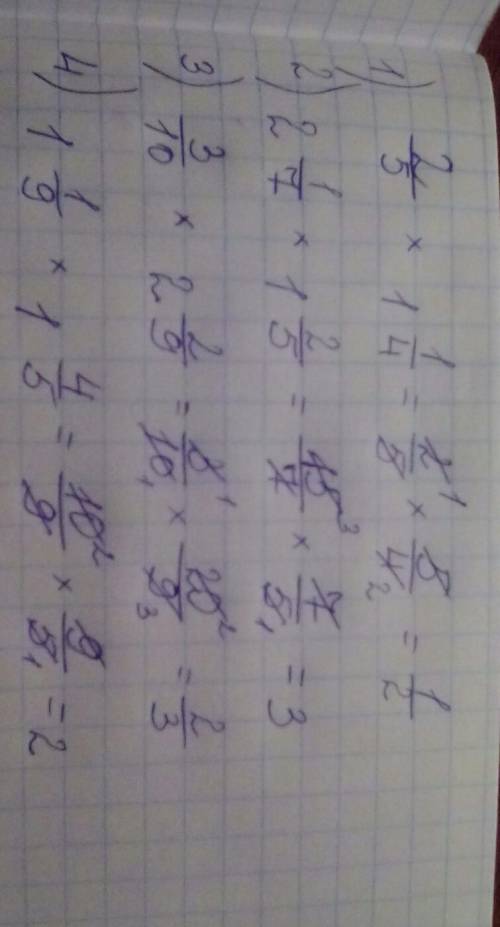 1) 2/5 × 1 1/4 = 2/5 ¹ × 5/4 ₂ = 1/2
2) 2 1/7 × 1 2/5 = 15/7 ³ × 7/5 ₁ = 3
3) 3/10 × 2 2/9 = 3/10 ¹ ₁ × 20/9 ² ₃ = 2/3
4) 1 1/9 × 1 4/5 = 10/9 ² × 9/5 ₁ = 2